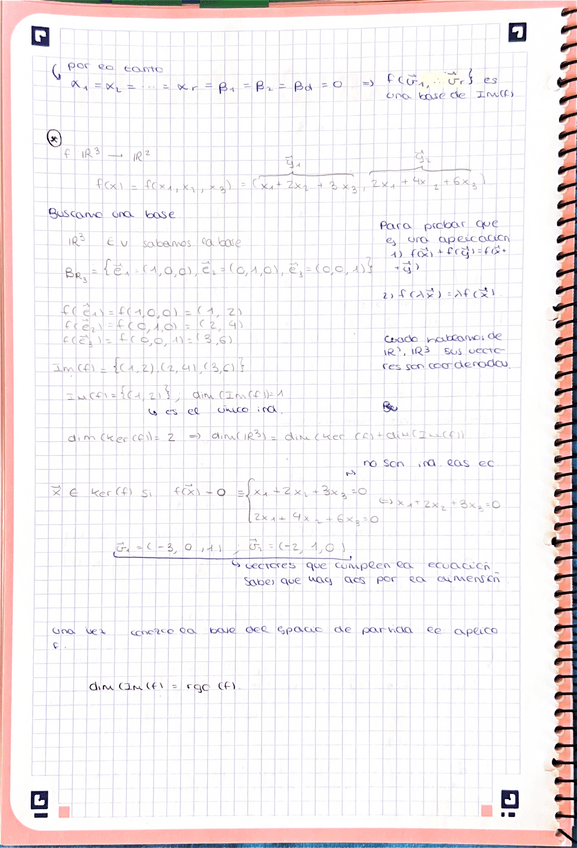 por eo tanto
α₁ = α₂ = ... = αr = β₁ = β₂ = βd = 0 ⇒ f(v⃗₁, ... v⃗r} es
una base de Im(f)
*
f ℝ³ → ℝ²
y⃗₁ y⃗₂
f(x) = f(x₁, x₂, x₃) = (x₁ + 2x₂ + 3x₃, 2x₁ + 4x₂ + 6x₃)
Buscamo una base
ℝ³ E.V sabemos ea base
B_R₃ = {e⃗₁ = (1,0,0), e⃗₂ = (0,1,0), e⃗₃ = (0,0,1)}
Para probar que
es una apeicación
1) f(x⃗) + f(y⃗) = f(x⃗ +
+ y⃗)
2) f(λx⃗) = λf(x⃗)
f(e⃗₁) = f(1,0,0) = (1, 2)
f(e⃗₂) = f(0,1,0) = (2, 4)
f(e⃗₃) = f(0,0,1) = (3,6)
Im(f) = {(1,2), (2,4), (3,6)}
Im(f) = {(1,2)}, dim(Im(f)) = 1
↳ es el único ind.
ℝ², ℝ³ sus vecto
res son coordenadas.
dim(ker(f)) = 2 ⇒ dim(ℝ³) = dim(ker(f)) + dim(Im(f))
no son ind eas ec
x⃗ ∈ ker(f) si f(x⃗) = 0 = { x₁ + 2x₂ + 3x₃ = 0 ⇔ x₁ + 2x₂ + 3x₃ = 0
2x₁ + 4x₂ + 6x₃ = 0
v⃗₁ = (-3, 0, 1), v⃗₂ = (-2, 1, 0)
↳ vectores que cumpeen ea ecuación
Sabes que hay dos por ea dimensión
una vez conozco ea base dee espacio de partida ee apeico
f.
dim(Im(f) = rgo (f)